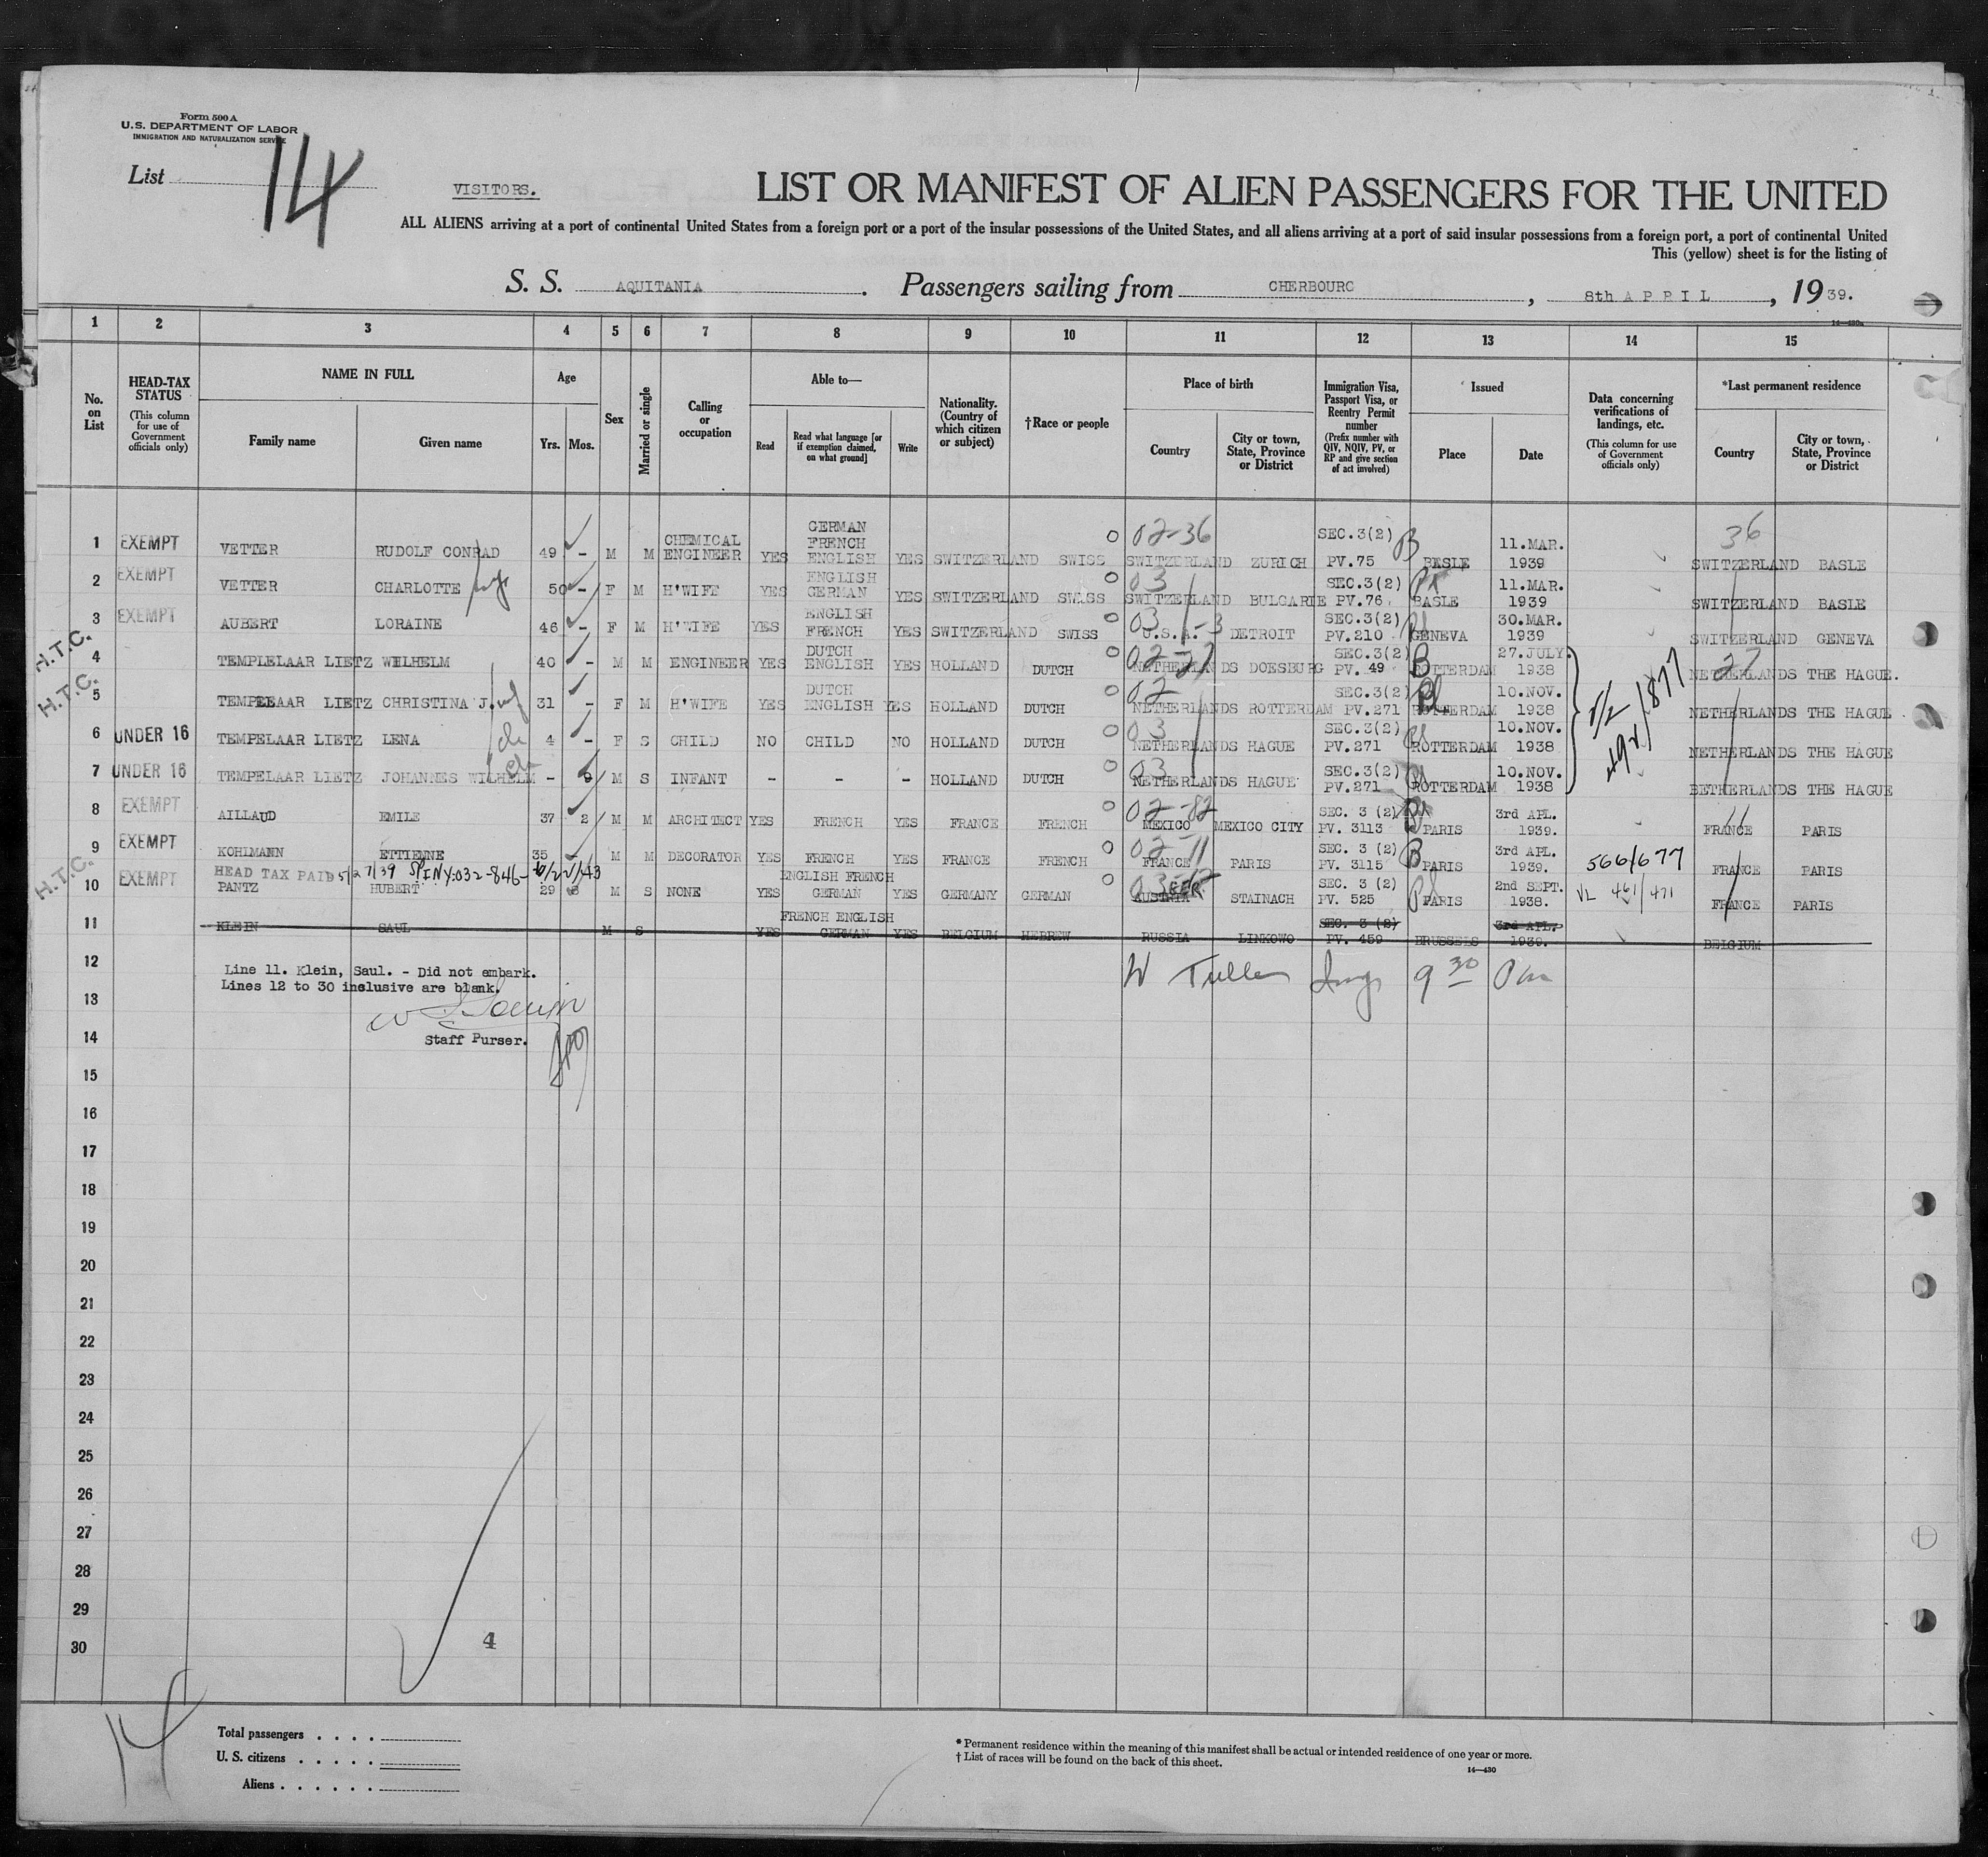 Form 500 A
U.S. DEPARTMENT OF LABOR
IMMIGRATION AND NATURALIZATION SERVICE
List 14
VISITORS.
LIST OR MANIFEST OF ALIEN PASSENGERS FOR THE UNITED
ALL ALIENS arriving at a port of continental United States from a foreign port or a port of the insular possessions of the United States, and all aliens arriving at a port of said insular possessions from a foreign port, a port of continental United
This (yellow) sheet is for the listing of
S. S. AQUITANIA. Passengers sailing from CHERBOURG, 8th APRIL, 1939.
14—430a
1 2 3 4 5 6 7 8 9 10 11 12 13 14 15
No. on List
HEAD-TAX STATUS (This column for use of Government officials only)
NAME IN FULL
Family name
Given name
Age
Yrs. Mos.
Sex
Married or single
Calling or occupation
Able to—
Read
Read what language [or if exemption claimed, on what ground]
Write
Nationality. (Country of which citizen or subject)
†Race or people
Place of birth
Country
City or town, State, Province or District
Immigration Visa, Passport Visa, or Reentry Permit number (Prefix number with QIV, NQIV, PV, or RP and give section of act involved)
Issued
Place
Date
Data concerning verifications of landings, etc. (This column for use of Government officials only)
*Last permanent residence
Country
City or town, State, Province or District
1 EXEMPT VETTER RUDOLF CONRAD 49 - M M CHEMICAL ENGINEER YES GERMAN FRENCH ENGLISH YES SWITZERLAND SWISS 02-36 SWITZERLAND ZURICH SEC.3(2) PV.75 BASLE 11.MAR. 1939 36 SWITZERLAND BASLE
2 EXEMPT VETTER CHARLOTTE 50 - F M H'WIFE YES ENGLISH GERMAN YES SWITZERLAND SWISS 03 SWITZERLAND BULGARIE SEC.3(2) PV.76. BASLE 11.MAR. 1939 SWITZERLAND BASLE
3 EXEMPT AUBERT LORAINE 46 - F M H'WIFE YES ENGLISH FRENCH YES SWITZERLAND SWISS 03 -3 U.S.A. DETROIT SEC.3(2) PV.210 GENEVA 30.MAR. 1939 SWITZERLAND GENEVA
H.T.C. 4 TEMPLELAAR LIETZ WILHELM 40 - M M ENGINEER YES DUTCH ENGLISH YES HOLLAND DUTCH 02-27 NETHERLANDS DOESBURG SEC.3(2) PV. 49 ROTTERDAM 27.JULY. 1938 27 NETHERLANDS THE HAGUE.
H.T.C. 5 TEMPELAAR LIETZ CHRISTINA J. wf 31 - F M H'WIFE YES DUTCH ENGLISH YES HOLLAND DUTCH 02 NETHERLANDS ROTTERDAM SEC.3(2) PV.271 ROTTERDAM 10.NOV. 1938 NETHERLANDS THE HAGUE
6 UNDER 16 TEMPELAAR LIETZ LENA ch 4 - F S CHILD NO CHILD NO HOLLAND DUTCH 03 NETHERLANDS HAGUE SEC.3(2) PV.271 ROTTERDAM 10.NOV. 1938 NETHERLANDS THE HAGUE
7 UNDER 16 TEMPELAAR LIETZ JOHANNES WILHELM ch - 9 M S INFANT - - - HOLLAND DUTCH 03 NETHERLANDS HAGUE SEC.3(2) PV.271 ROTTERDAM 10.NOV. 1938 BETHERLANDS THE HAGUE
8 EXEMPT AILLAUD EMILE 37 2 M M ARCHITECT YES FRENCH YES FRANCE FRENCH 02-82 MEXICO MEXICO CITY SEC. 3 (2) PV. 3113 PARIS 3rd APL. 1939. 11 FRANCE PARIS
9 EXEMPT KOHLMANN ETTIENNE 35 - M M DECORATOR YES FRENCH YES FRANCE FRENCH 02-11 FRANCE PARIS SEC. 3 (2) PV. 3115 PARIS 3rd APL. 1939. 566/677 FRANCE PARIS
HEAD TAX PAID 5/27/39
H.T.C. 10 EXEMPT PANTZ HUBERT 29 8 M S NONE YES ENGLISH FRENCH GERMAN YES GERMANY GERMAN AUSTRIA GER STAINACH SEC. 3 (2) PV. 525 PARIS 2nd SEPT. 1938. VL 461/471 FRANCE PARIS
11 KLEIN SAUL M S YES FRENCH ENGLISH GERMAN YES BELGIUM HEBREW RUSSIA LINKOWO SEC. 3 (2) PV. 459 BRUSSELS 3rd APL. 1939. BELGIUM
12 Line 11. Klein, Saul. - Did not embark.
Lines 12 to 30 inclusive are blank.
9 30 Pm
13
14 Staff Purser.
15
16
17
18
19
20
21
22
23
24
25
26
27
28
29
30
4
14
Total passengers . . . .
U. S. citizens . . . . .
Aliens . . . . . .
* Permanent residence within the meaning of this manifest shall be actual or intended residence of one year or more.
† List of races will be found on the back of this sheet.
14—430